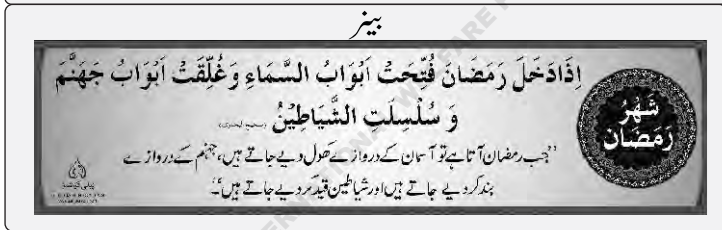 بینر
اِذَادَخَلَ رَمَضَانَ فُتِّحَتْ اَبْوَابُ السَّمَاءِ وَغُلِّقَتْ اَبْوَابُ جَهَنَّمَ
وَ سُلْسِلَتِ الشَّيَاطِيْنُ (صحیح البخاری)
شَهْرُ
رَمَضَان
”جب رمضان آتا ہے تو آسمان کے دروازے کھول دیے جاتے ہیں، جہنم کے دروازے
بند کر دیے جاتے ہیں اور شیاطین قید کر دیے جاتے ہیں“۔